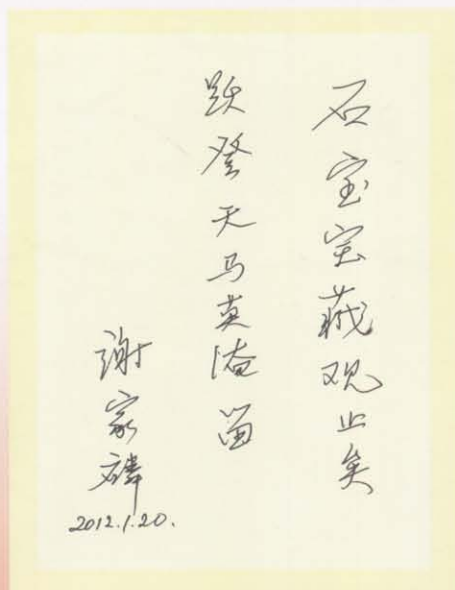 石宝宝藏观止矣
跃登天马英滃笛
谢家麟
2012.1.20.